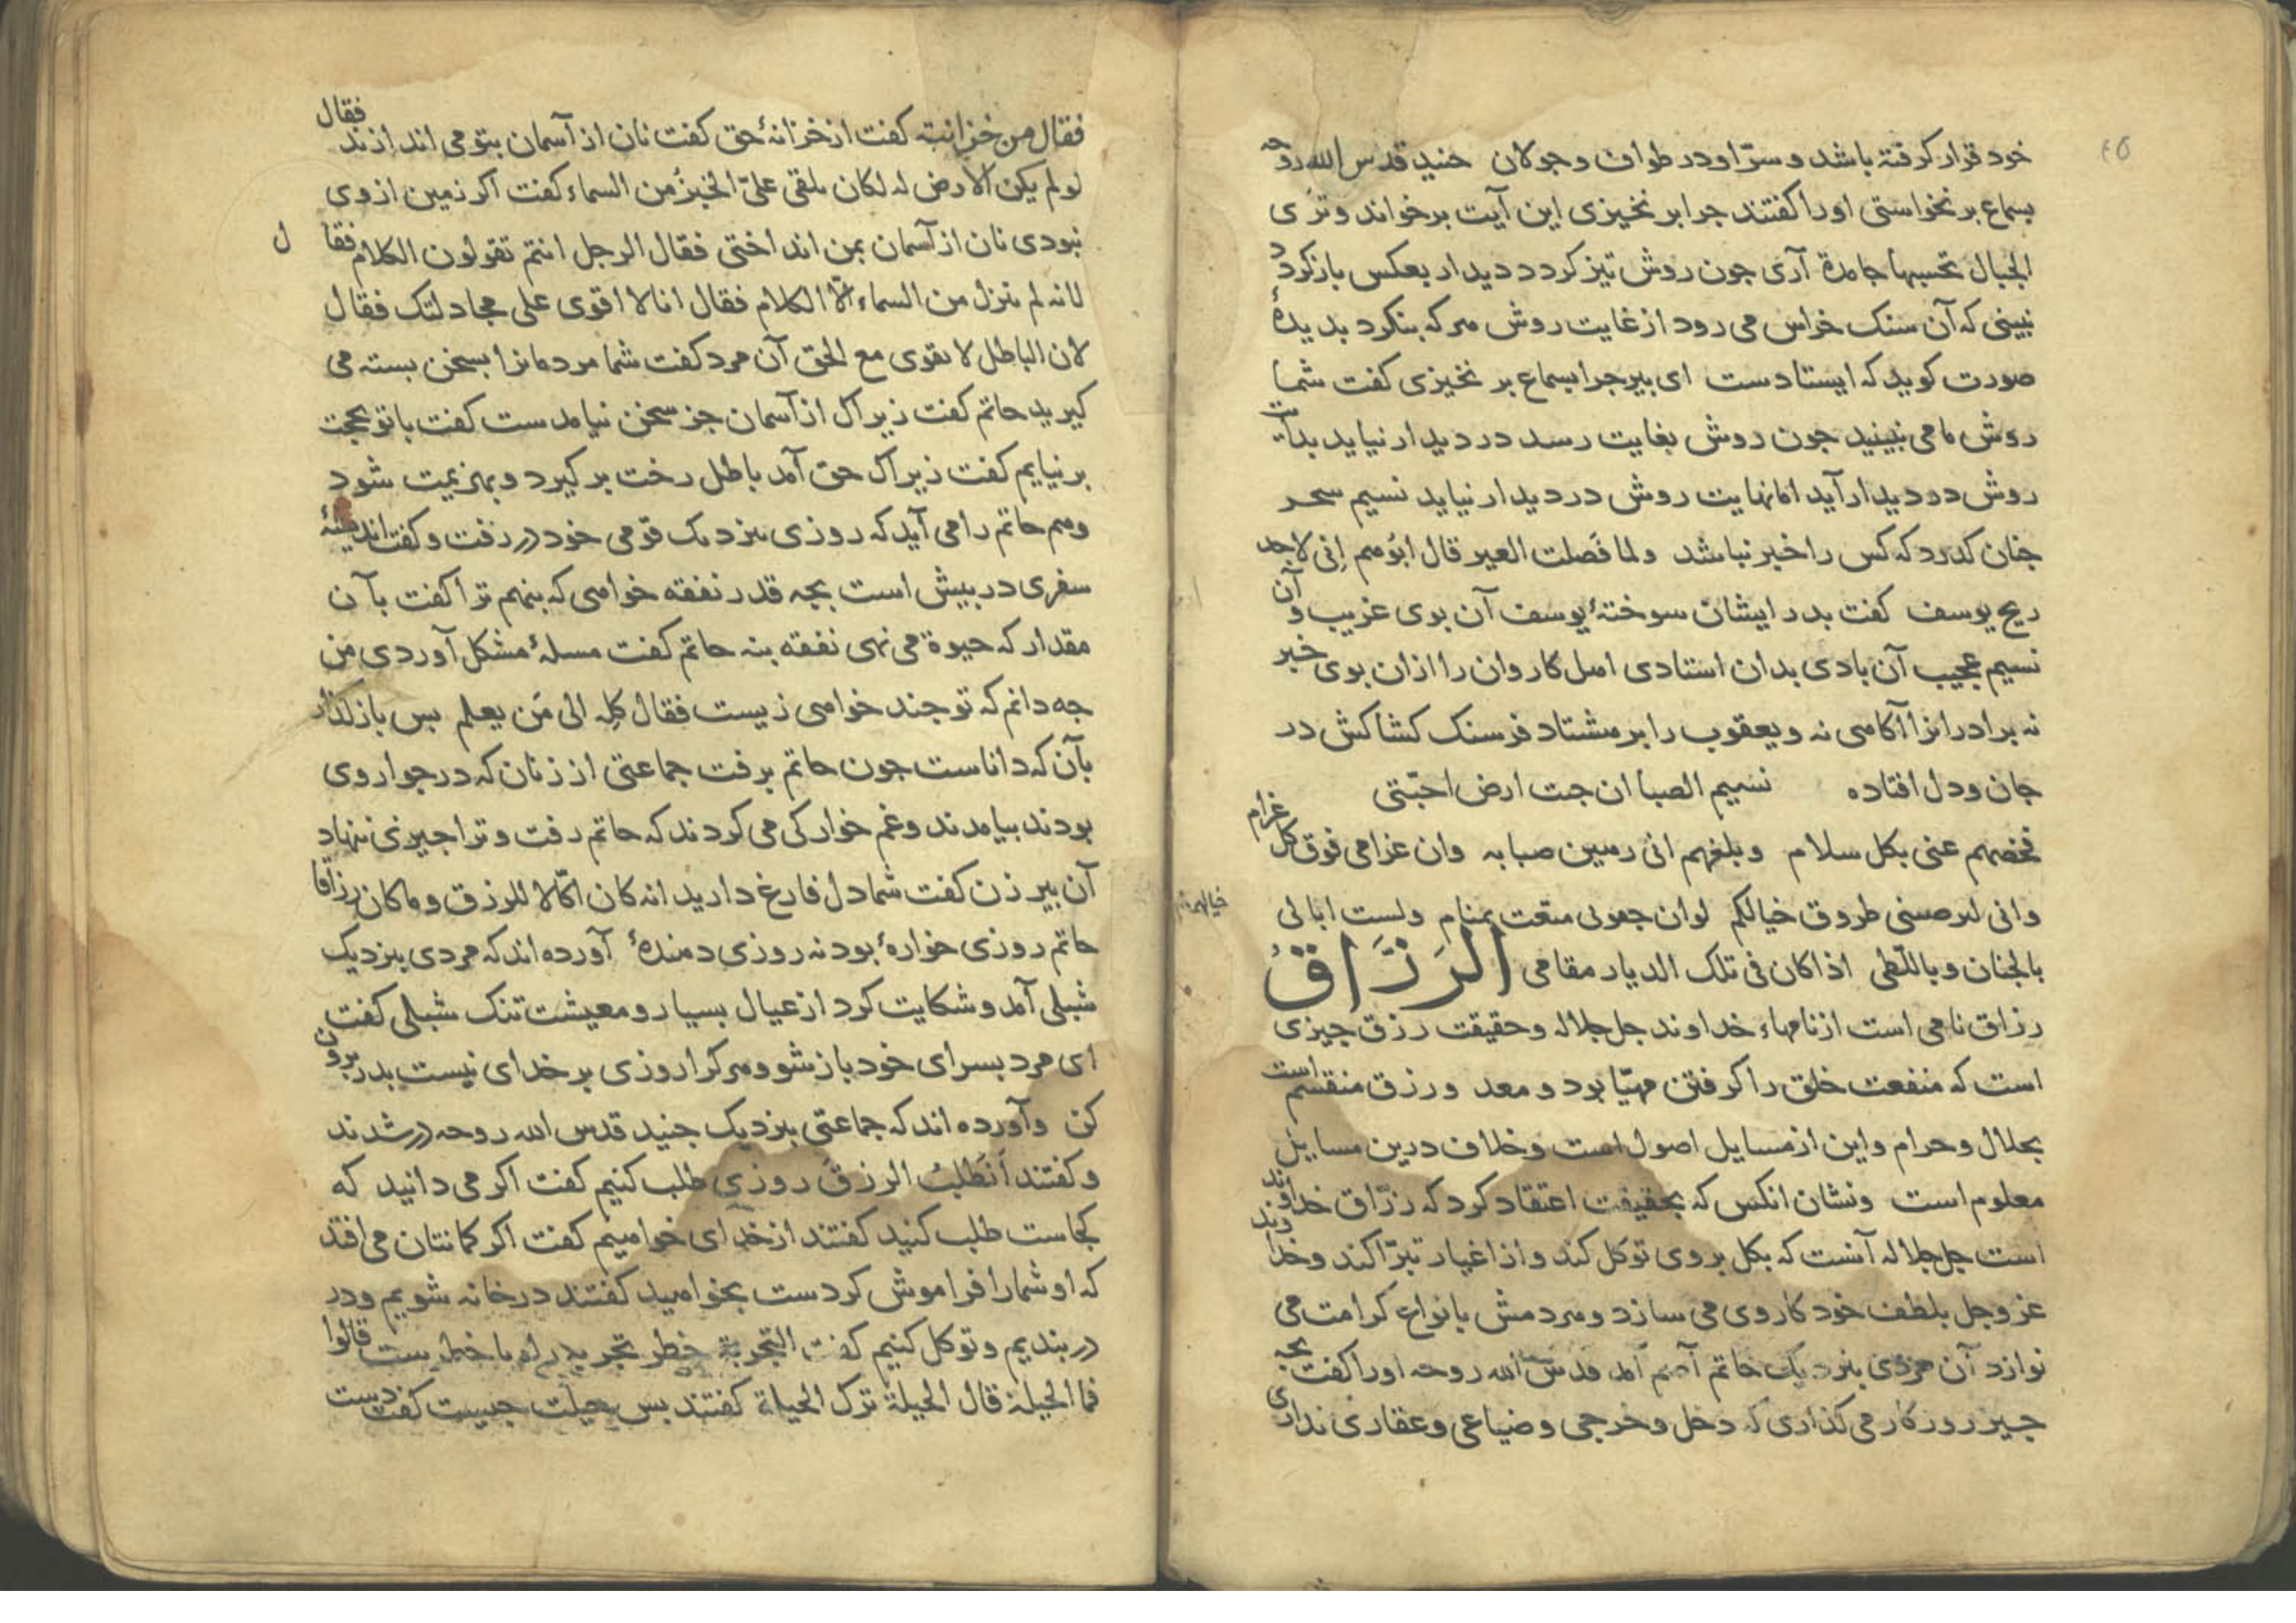 ٤٥
خود قرار کرفتة باشد و سرّ او در طواف و جولان جنید قدس الله روحه
بسماع بر نخواستی اورا کفتند جرا بر نخیزی این آیت برخواند و تری
الجبال تحسبها جامدة آری جون روش تیز کردد دیدار بعکس باز کردد
نبینی که آن سنک خراس می رود از غایت روش هر که بنکرد بدیدهٔ
صورت کوید که ایستادست ای بیر جرا بسماع بر نخیزی کفت شما
روش ما می نبینید جون روش بغایت رسد در دیدار نیاید بدایت
روش در دیدار آید اما نهایت روش در دیدار نیاید نسیم سحر
جنان کدرد که کس را خبر نباشد ولما فَصلت العیر قال ابوُهم اِنی لاجد
ریح یوسف کفت بدر ایشان سوختهٔ یوسف آن بوی غریب و آن
نسیم عجیب آن بادی بدان استادی اهل کاروان را ازان بوی خبر
نه برادرانرا آکاهی نه و یعقوب را بر هشتاد فرسنک کشاکش در
جان و دل افتاده نسیم الصبا ان جت ارض احبّتی
فخصهم عنی بکل سلام وبلغهم انی رهین صبابه وان غرامی فوق کل غرام
وانی لیرضینی طروق خیالکم لوان جفونی متعت بمنام ولست ابالی
بالجنان وباللّظی اذا کان فی تلک الدیار مقامی الرَزَّاقُ
رزاق نامی است از نامهاء خداوند جل جلاله و حقیقت رزق جیزی
است که منفعت خلق را کرفتن مهیّا بود و معد و رزق منقسم است
بحلال و حرام و این از مسایل اصول است و خلاف درین مسایل
معلوم است و نشان انکس که بحقیقت اعتقاد کرد که رزّاق خداوند
است جل جلاله آنست که بکل بر وی توکل کند و از اغیار تبرّا کند و خداوند
عز و جل بلطف خود کار وی می سازد و هر دمش بانواع کرامت می
نوازد آن مردی بنزدیک حاتم آصم آمد قدس الله روحه اورا کفت بجه
جیز روزکار می کذاری که دخل و خرجی و ضیاعی و عقاری نداری
فقال من خزانته کفت از خزانهٔ حق کفت نان از آسمان بتو می اندازند فقال
لو لم یکن الارض له لکان یلقی علیّ الخبزُ من السماء کفت اکر زمین از وی
نبودی نان از آسمان بمن انداختی فقال الرجل انتم تقولون الکلام فقال
لانه لم ینزل من السماء الّا الکلام فقال انا لا اقوی علی مجادلتک فقال
لان الباطل لا یقوی مع الحق آن مرد کفت شما مردمانرا بسخن بسته می
کیرید حاتم کفت زیراک از آسمان جز سخن نیامدست کفت با تو بحجت
بر نیایم کفت زیراک حق آمد باطل رخت بر کیرد و بهزیمت شود
و هم حاتم را می آید که روزی بنزدیک قومی خود در رفت و کفت اندیشهٔ
سفری در بیش است بجه قدر نفقه خواهی که بنهم ترا کفت بآن
مقدار که حیوة می نهی نفقه بنه حاتم کفت مسلهٔ مشکل آوردی من
جه دانم که تو جند خواهی زیست فقال کِله الی مَن یعلم بس باز کذار
بآن که داناست جون حاتم برفت جماعتی از زنان که در جوار وی
بودند بیامدند و غم خوارکی می کردند که حاتم رفت و ترا جیزی ننهاد
آن بیر زن کفت شما دل فارغ دارید انه کان اکّالا للرزق وما کان رزاقا
حاتم روزی خوارهٔ بود نه روزی دهندهٔ آورده اند که مردی بنزدیک
شبلی آمد و شکایت کرد از عیال بسیار و معیشت تنک شبلی کفت
ای مرد بسرای خود باز شو و هر کرا روزی بر خدای نیست بدر برون
کن و آورده اند که جماعتی بنزدیک جنید قدس الله روحه در شدند
و کفتند اَنَطلبُ الرزقَ روزی طلب کنیم کفت اکر می دانید که
کجاست طلب کنید کفتند از خدای خواهیم کفت اکر کمانتان می افتد
که او شمارا فراموش کردست بخواهید کفتند در خانه شویم و در
در بندیم و توکل کنیم کفت التجربة خطر قالوا
فما الحیلة قال الحیلة ترک الحیلة کفتند بس حیلت جیست کفت دست